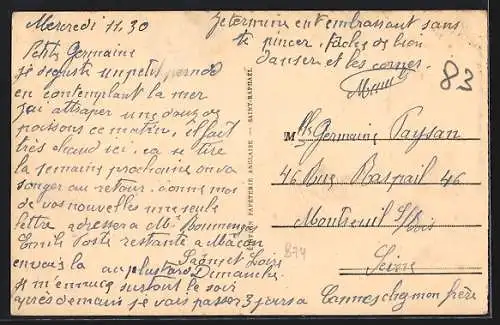 Mercredi 11.30
Petite Germaine
je deguste un petit pernod
en contemplant la mer
j'ai attraper une douz. de
poissons ce matin, il fait
très chaud ici, ca se tire
la semaine prochaine on va
songer au retour. donne moi
de vos nouvelles une seule
lettre adressera Mr
Emile Poste restante a Macon
Saône et Loire
envois la au plus tard Dimanche
je m'ennuie surtout le soir
après demain je vais passer 3 jours a Cannes chez mon frère
Je termine en t'embrassant sans
te pincer, tâches de bien
danser et les cornes.
83
PAPETERIE ANGLAISE — SAINT-RAPHAEL
Mlle Germaine Paysan
46 Rue Raspail 46
Montreuil S/Bois
Seine
874